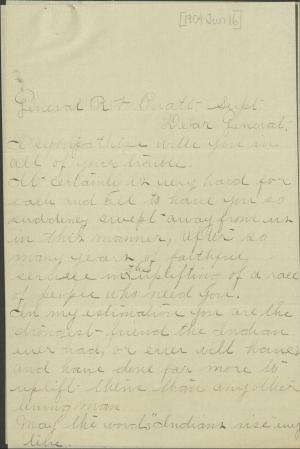 [1904 Jun 16]
General R H Pratt Supt
Dear General,
I sympathise with you in
all of your trouble.
It certainly is very hard for
each and all to have you so
suddenly swept away from us
in this manner, after so
many years of faithful
service in the uplifting of a race
of people who need you.
In my estimation you are the
strongest friend the Indian
ever had, or ever will have
and have done far more to
uplift them than any other
living man
May the words "Indians rise